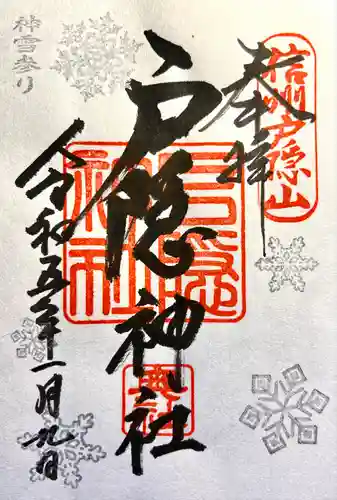 奉拝
信州戸隠山
戸隠神社
戸隠神社
令和五年一月九日
神雪参り